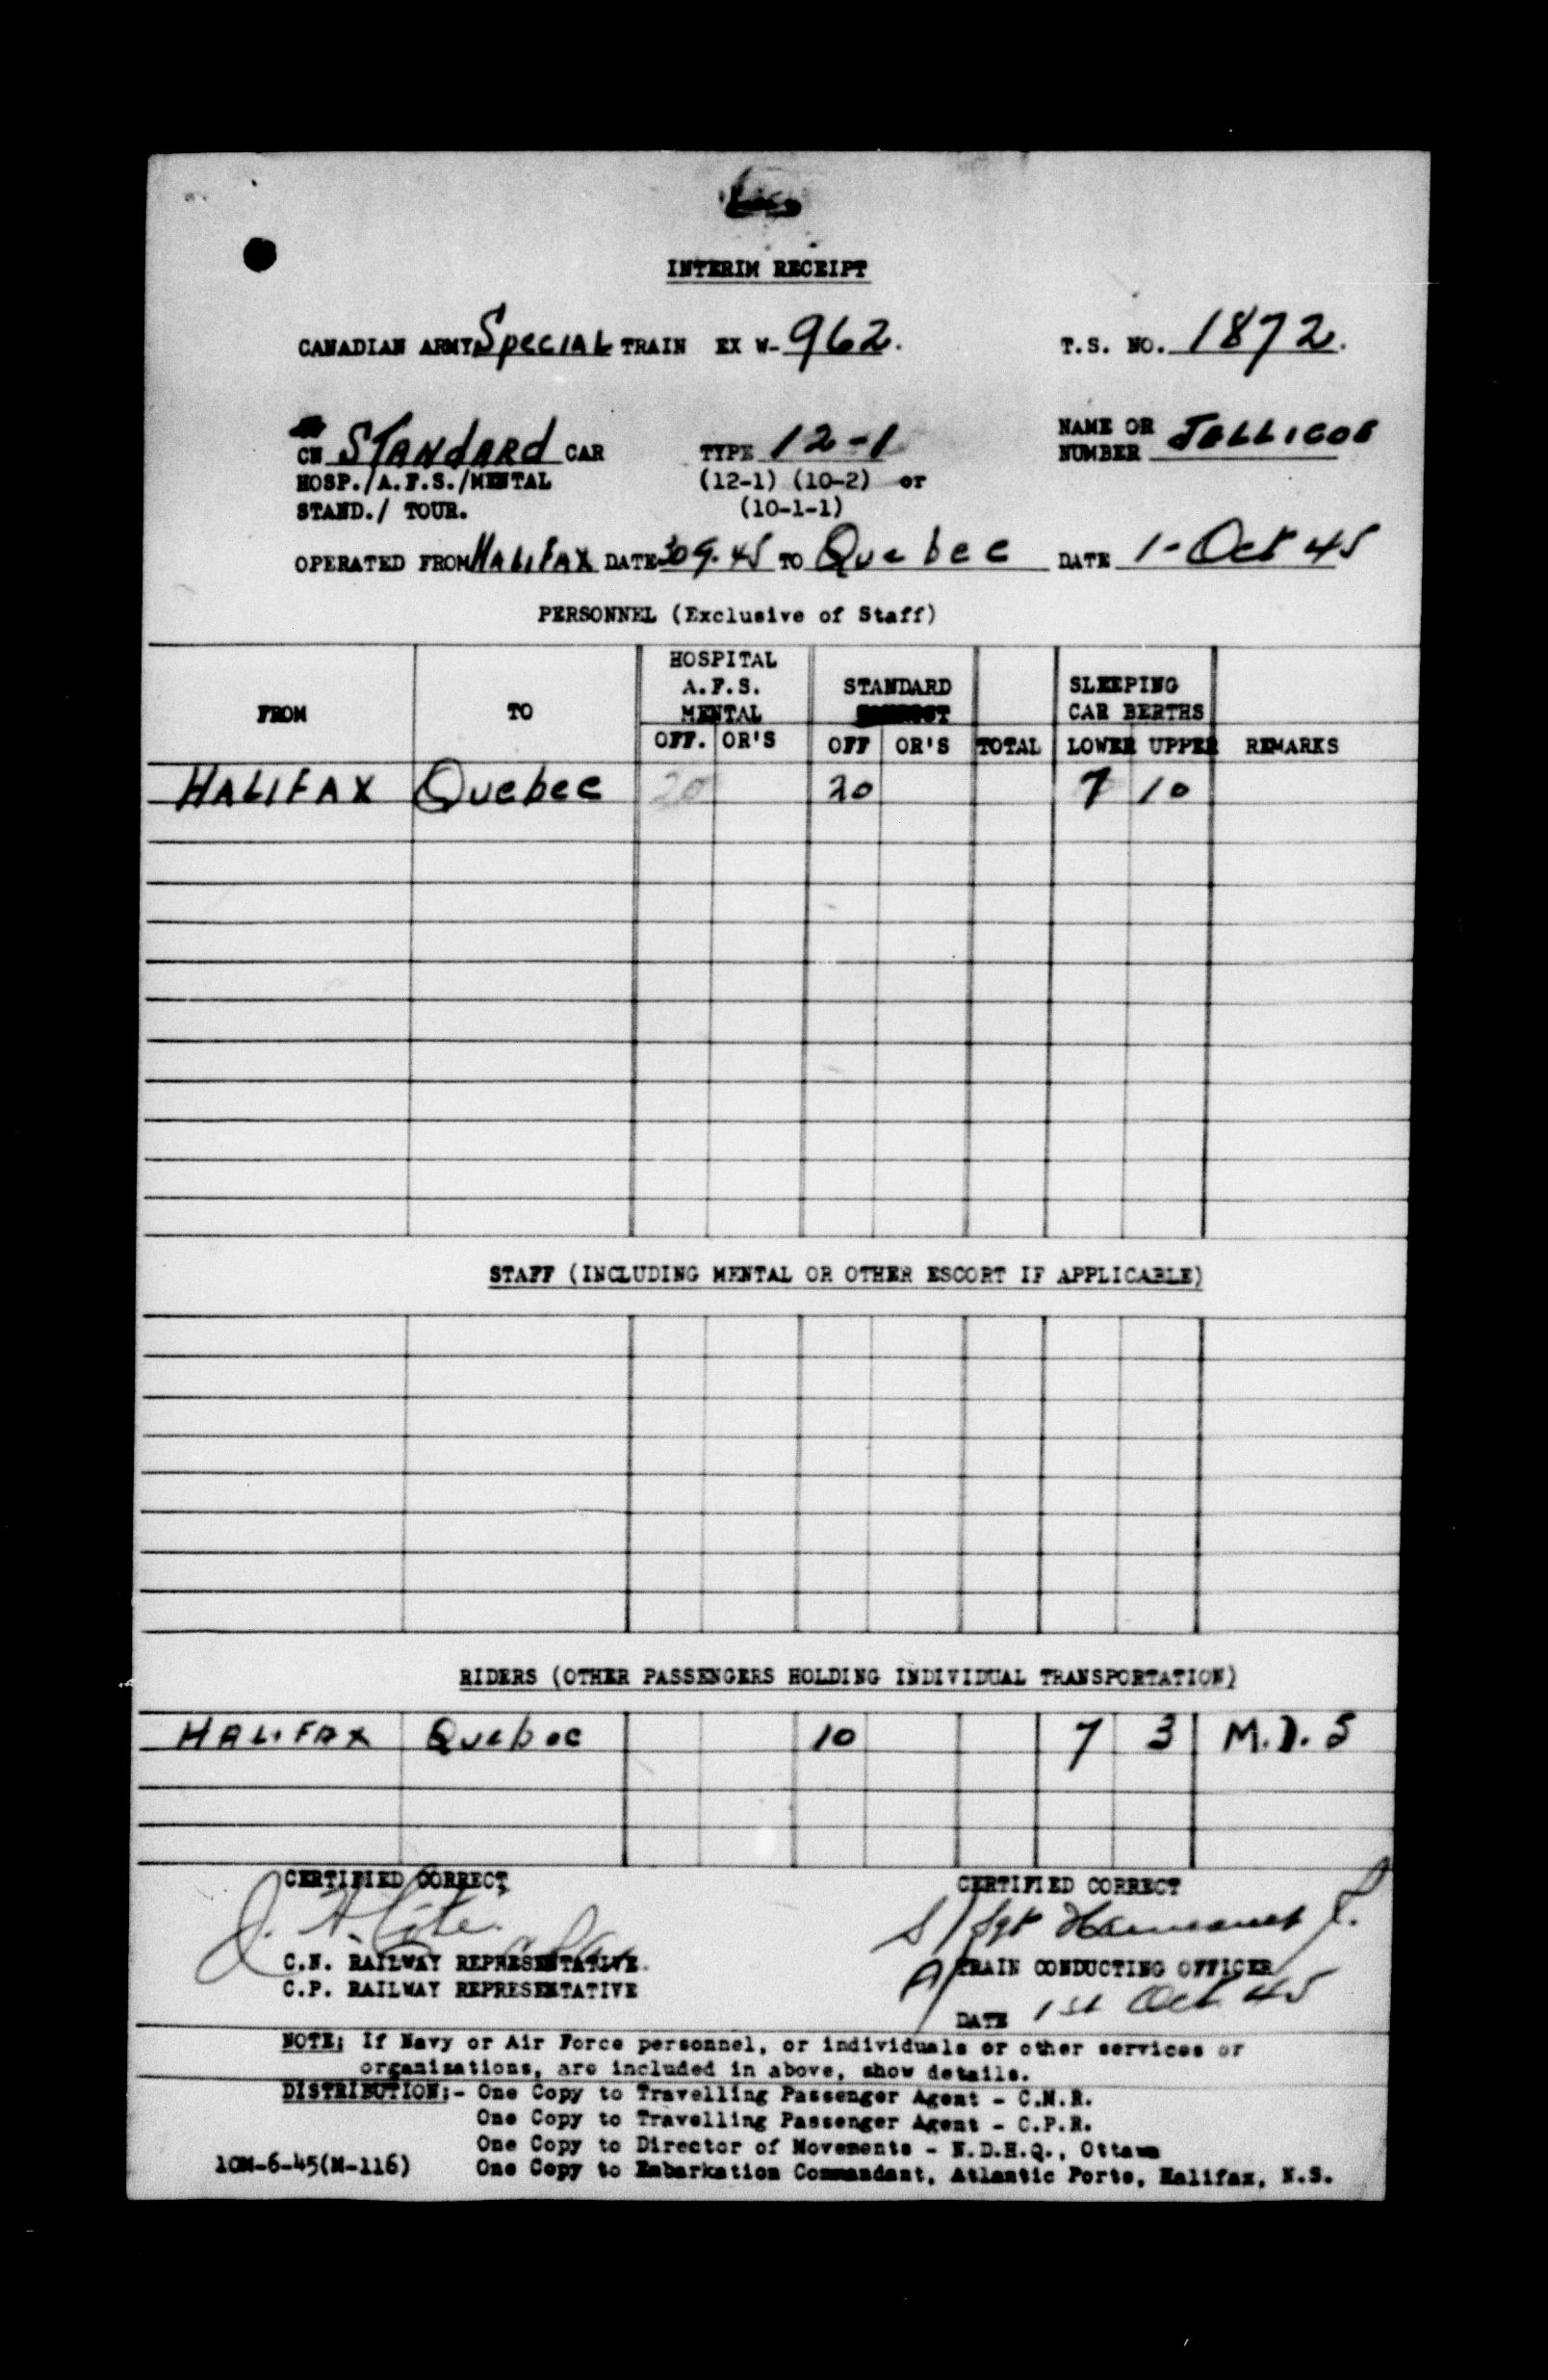 INTERIM RECEIPT
CANADIAN ARMY Special TRAIN EX W- 962. T.S. NO. 1872.
CN Standard CAR TYPE 12-1 NAME OR NUMBER JELLICOE
HOSP./A.F.S./MENTAL (12-1) (10-2) or
STAND./ TOUR. (10-1-1)
OPERATED FROM HALIFAX DATE 30 9. 45 TO Quebec DATE 1-Oct 45
PERSONNEL (Exclusive of Staff)
FROM TO HOSPITAL A.F.S. MENTAL STANDARD SLEEPING CAR BERTHS
OFF. OR'S OFF OR'S TOTAL LOWER UPPER REMARKS
HALIFAX Quebec 20 20 7 10
STAFF (INCLUDING MENTAL OR OTHER ESCORT IF APPLICABLE)
RIDERS (OTHER PASSENGERS HOLDING INDIVIDUAL TRANSPORTATION)
HALIFAX Quebec 10 7 3 M.D. 5
CERTIFIED CORRECT CERTIFIED CORRECT
J. A. Cote S/Sgt
C.N. RAILWAY REPRESENTATIVE A/TRAIN CONDUCTING OFFICER
C.P. RAILWAY REPRESENTATIVE
DATE 1st Oct 45
NOTE: If Navy or Air Force personnel, or individuals or other services or
organizations, are included in above, show details.
DISTRIBUTION:- One Copy to Travelling Passenger Agent - C.N.R.
One Copy to Travelling Passenger Agent - C.P.R.
One Copy to Director of Movements - N.D.H.Q., Ottawa
10M-6-45(M-116) One Copy to Embarkation Commandant, Atlantic Ports, Halifax, N.S.